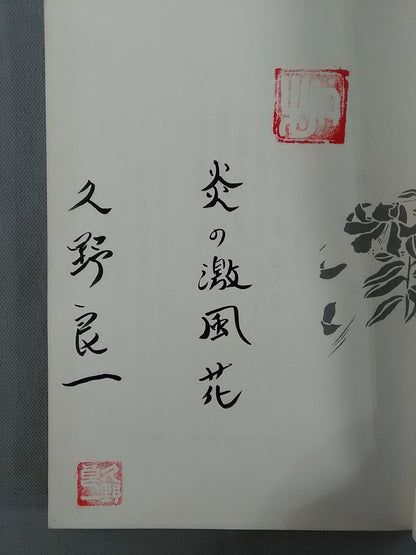 炎の激風花
久野良一
久野良一